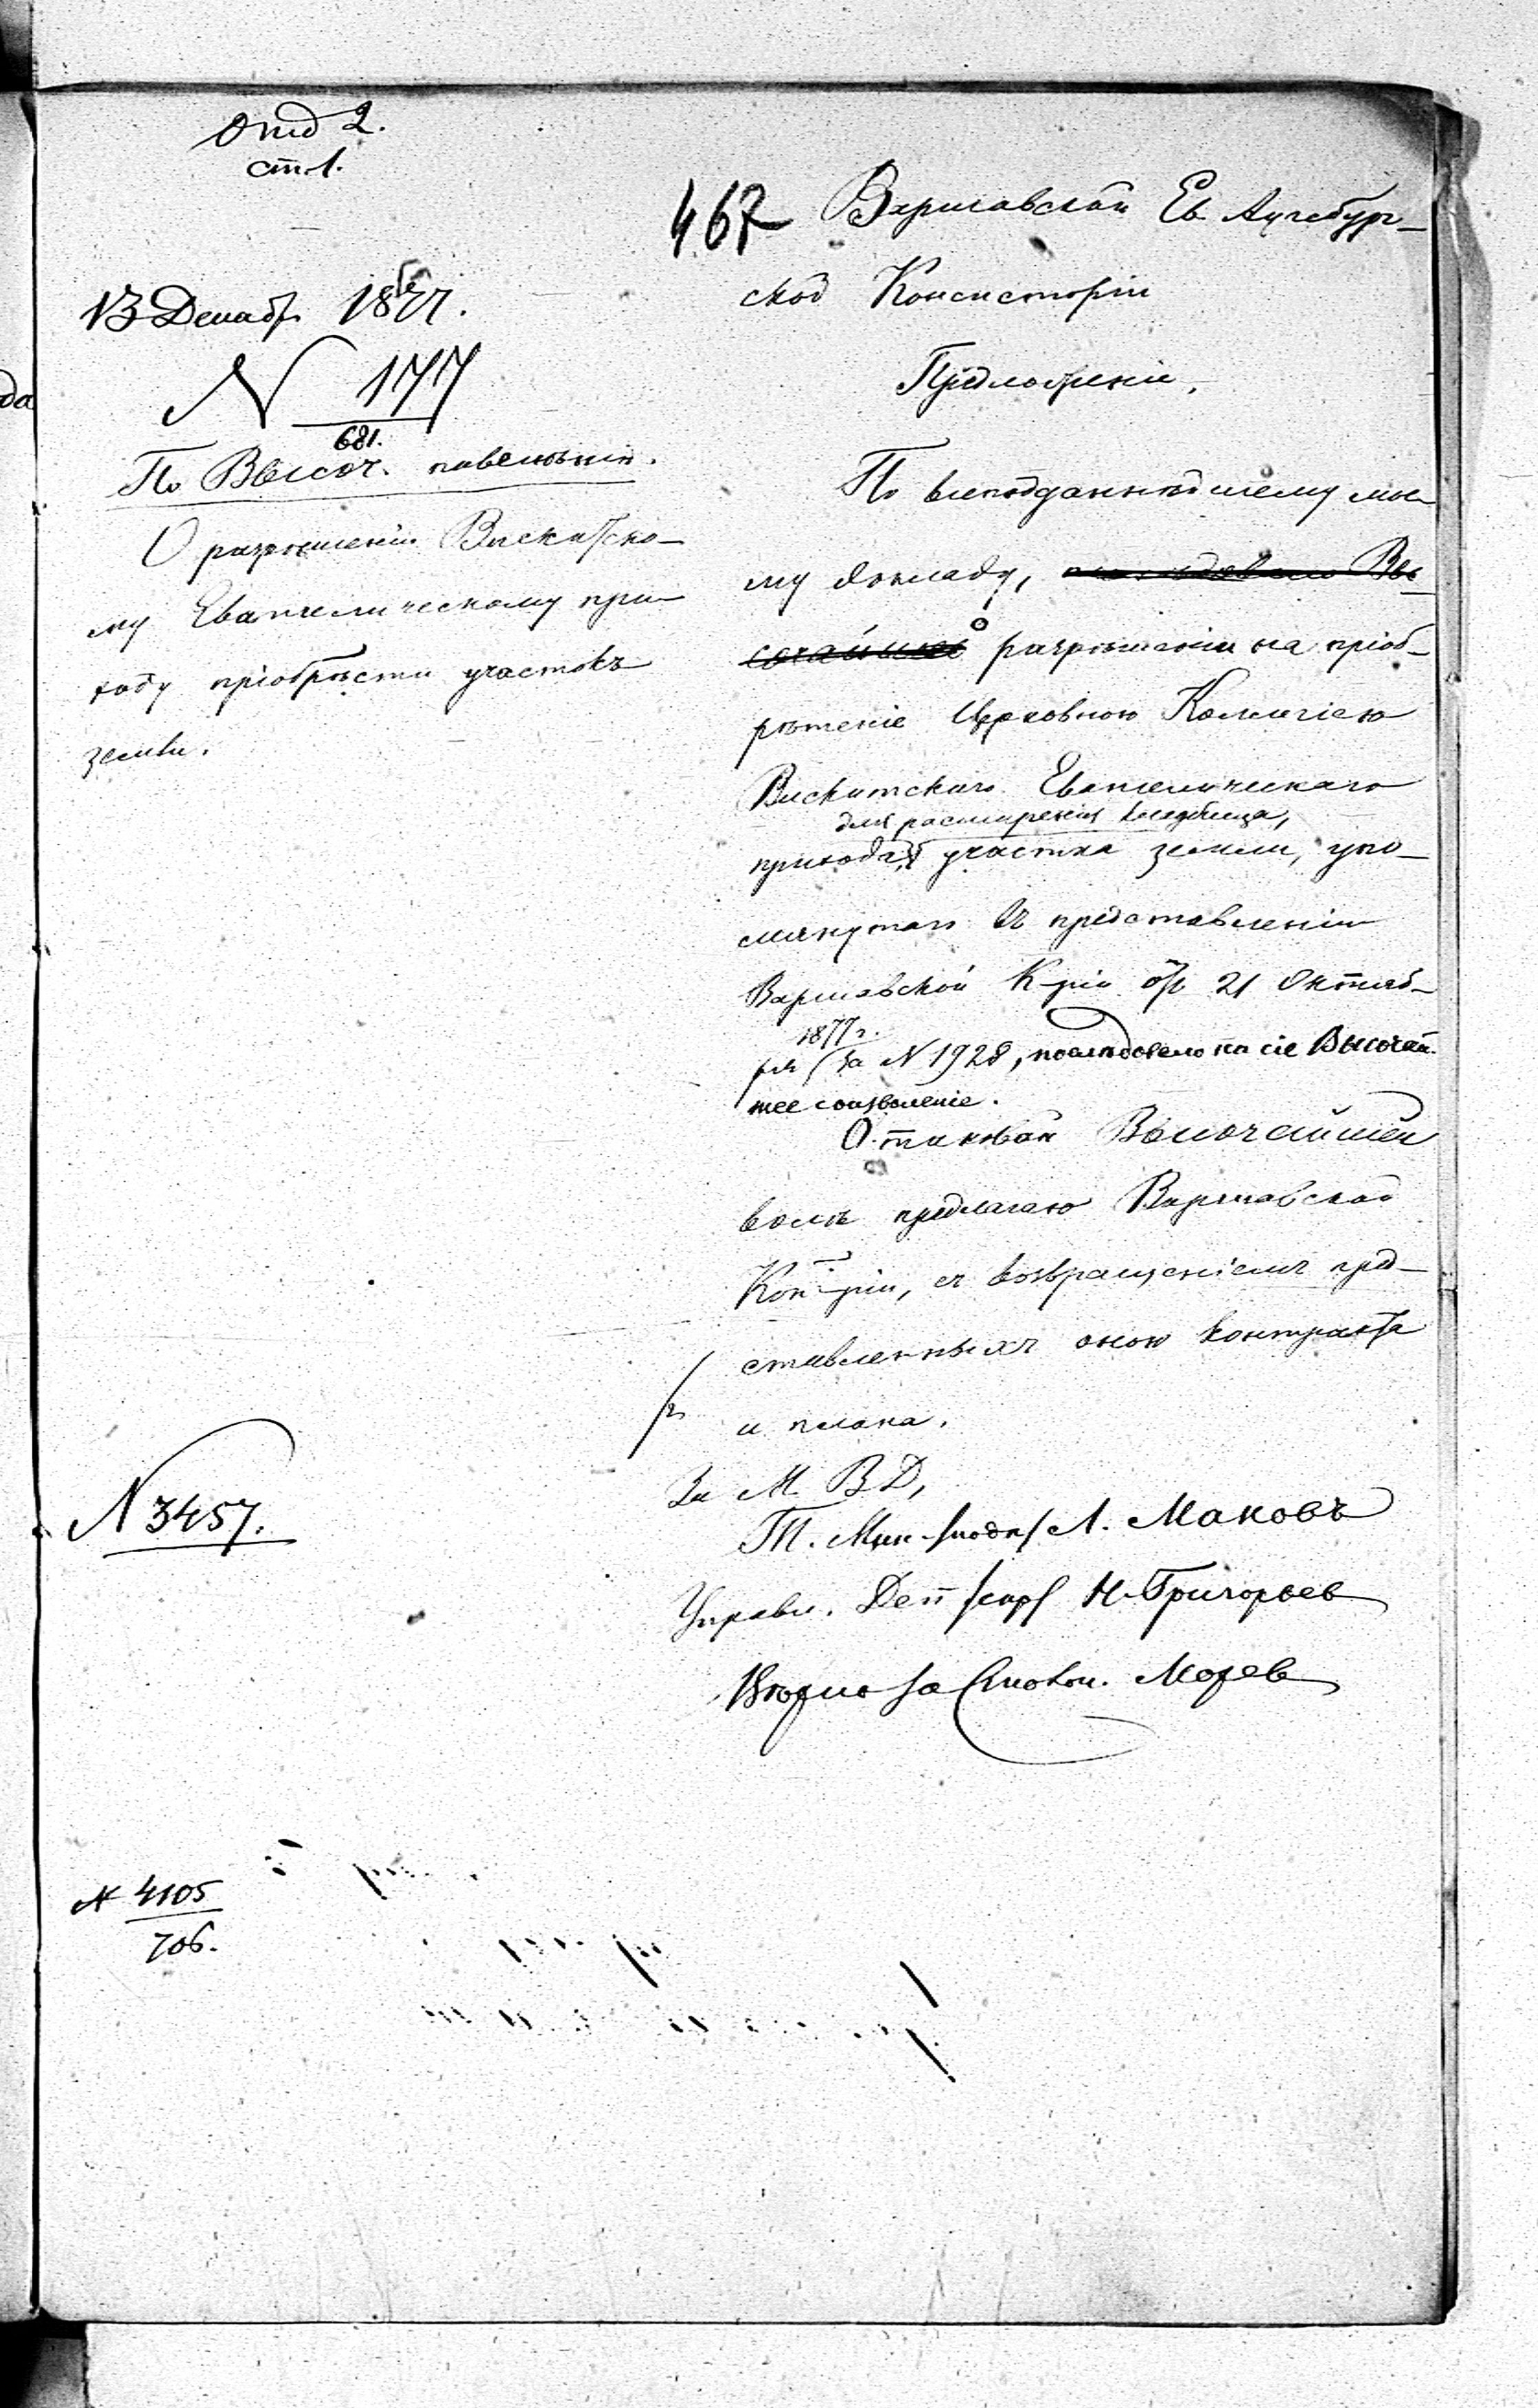 Отд 2.
ст. 1.
13 Декабр 1877.
N 177
681.
По Высоч. повелѣнію.
О разрѣшеніи Вискитско-
му Евангелическому при-
ходу пріобрѣсти участокъ
земли.
N 3457.
N 4105
706.
467 Варшавской Ев. Аугсбург-
ской Консисторіи
Предложеніе.
По всеподданнѣйшему мое-
му докладу, послѣдовало Вы-
сочайшее о разрѣшеніи на пріоб-
рѣтеніе Церковною Коллегіею
Вискитскаго Евангелическаго
для расширенія кладбища,
прихода, участка земли, упо-
мянутаго въ представленіи
Варшавской К-ріи отъ 21 Октяб-
1877 г.
ря за N 1928, послѣдовало на сіе Высочай-
шее соизволеніе.
О таковой Высочайшей
волѣ предлагаю Варшавской
Кон-ріи, съ возвращеніемъ пред-
ставленныхъ оною контракта
и плана.
За М. В Д,
Т. Мин. /подп/ Л. Маковъ
Управл. Деп /скр/ Н. Григорьев
Вѣрно за Столон. Мореев